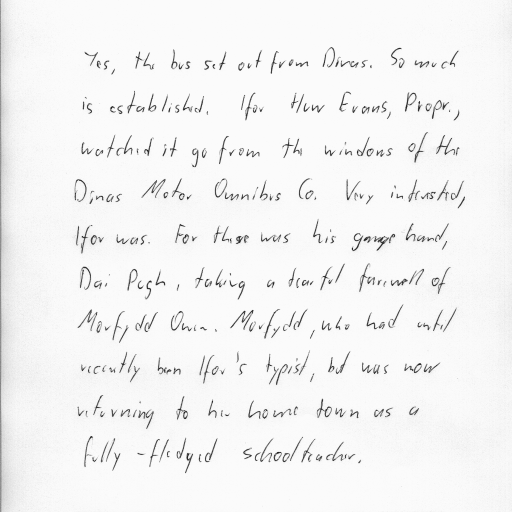 Yes, the bus set out from Dinas. So much
is established. Ifor Huw Evans, Propr.,
watched it go from the windows of the
Dinas Motor Omnibus Co. Very intersted,
Ifor was. For there was his garage hand,
Dai Pugh, taking a tearful farewell of
Morfydd Owen. Morfydd, who had until
recently been Ifor's typist, but was now
returning to her home town as a
fully-fledged schoolteacher.